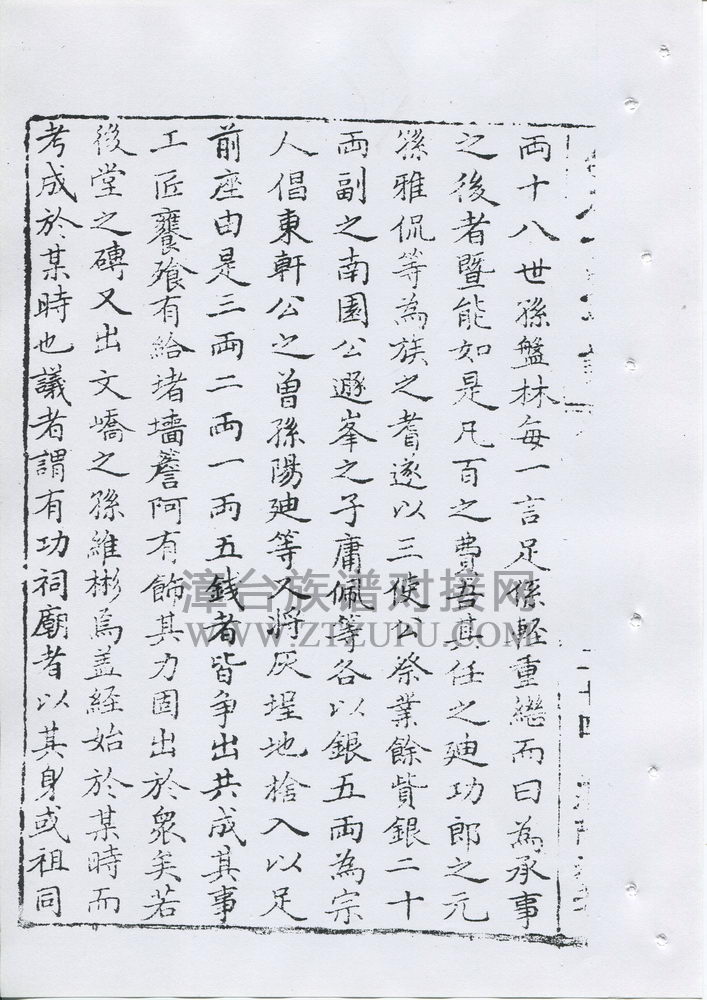 両十八世孫盤林每一言足係輕重繼而曰為承事
之後者暨能如是凡百之費吾其任之廸功郎之元
孫雅侃等為族之耆遂以三使公祭業餘貲銀二十
両副之南園公遯峯之子庸佩等各以銀五両為宗
人倡東軒公之曽孫陽廸等又將灰埕地捨入以足
前座由是三両二両一両五錢者皆争出共成其事
工匠饔飱有給堵墻簷阿有飾其力固出於衆矣若
後堂之磚又出文嶠之孫維彬焉盖経始於某時而
考成於某時也議者謂有功祠廟者以其身或祖同
漳台族谱对接网
WWW.ZTZUPU.COM